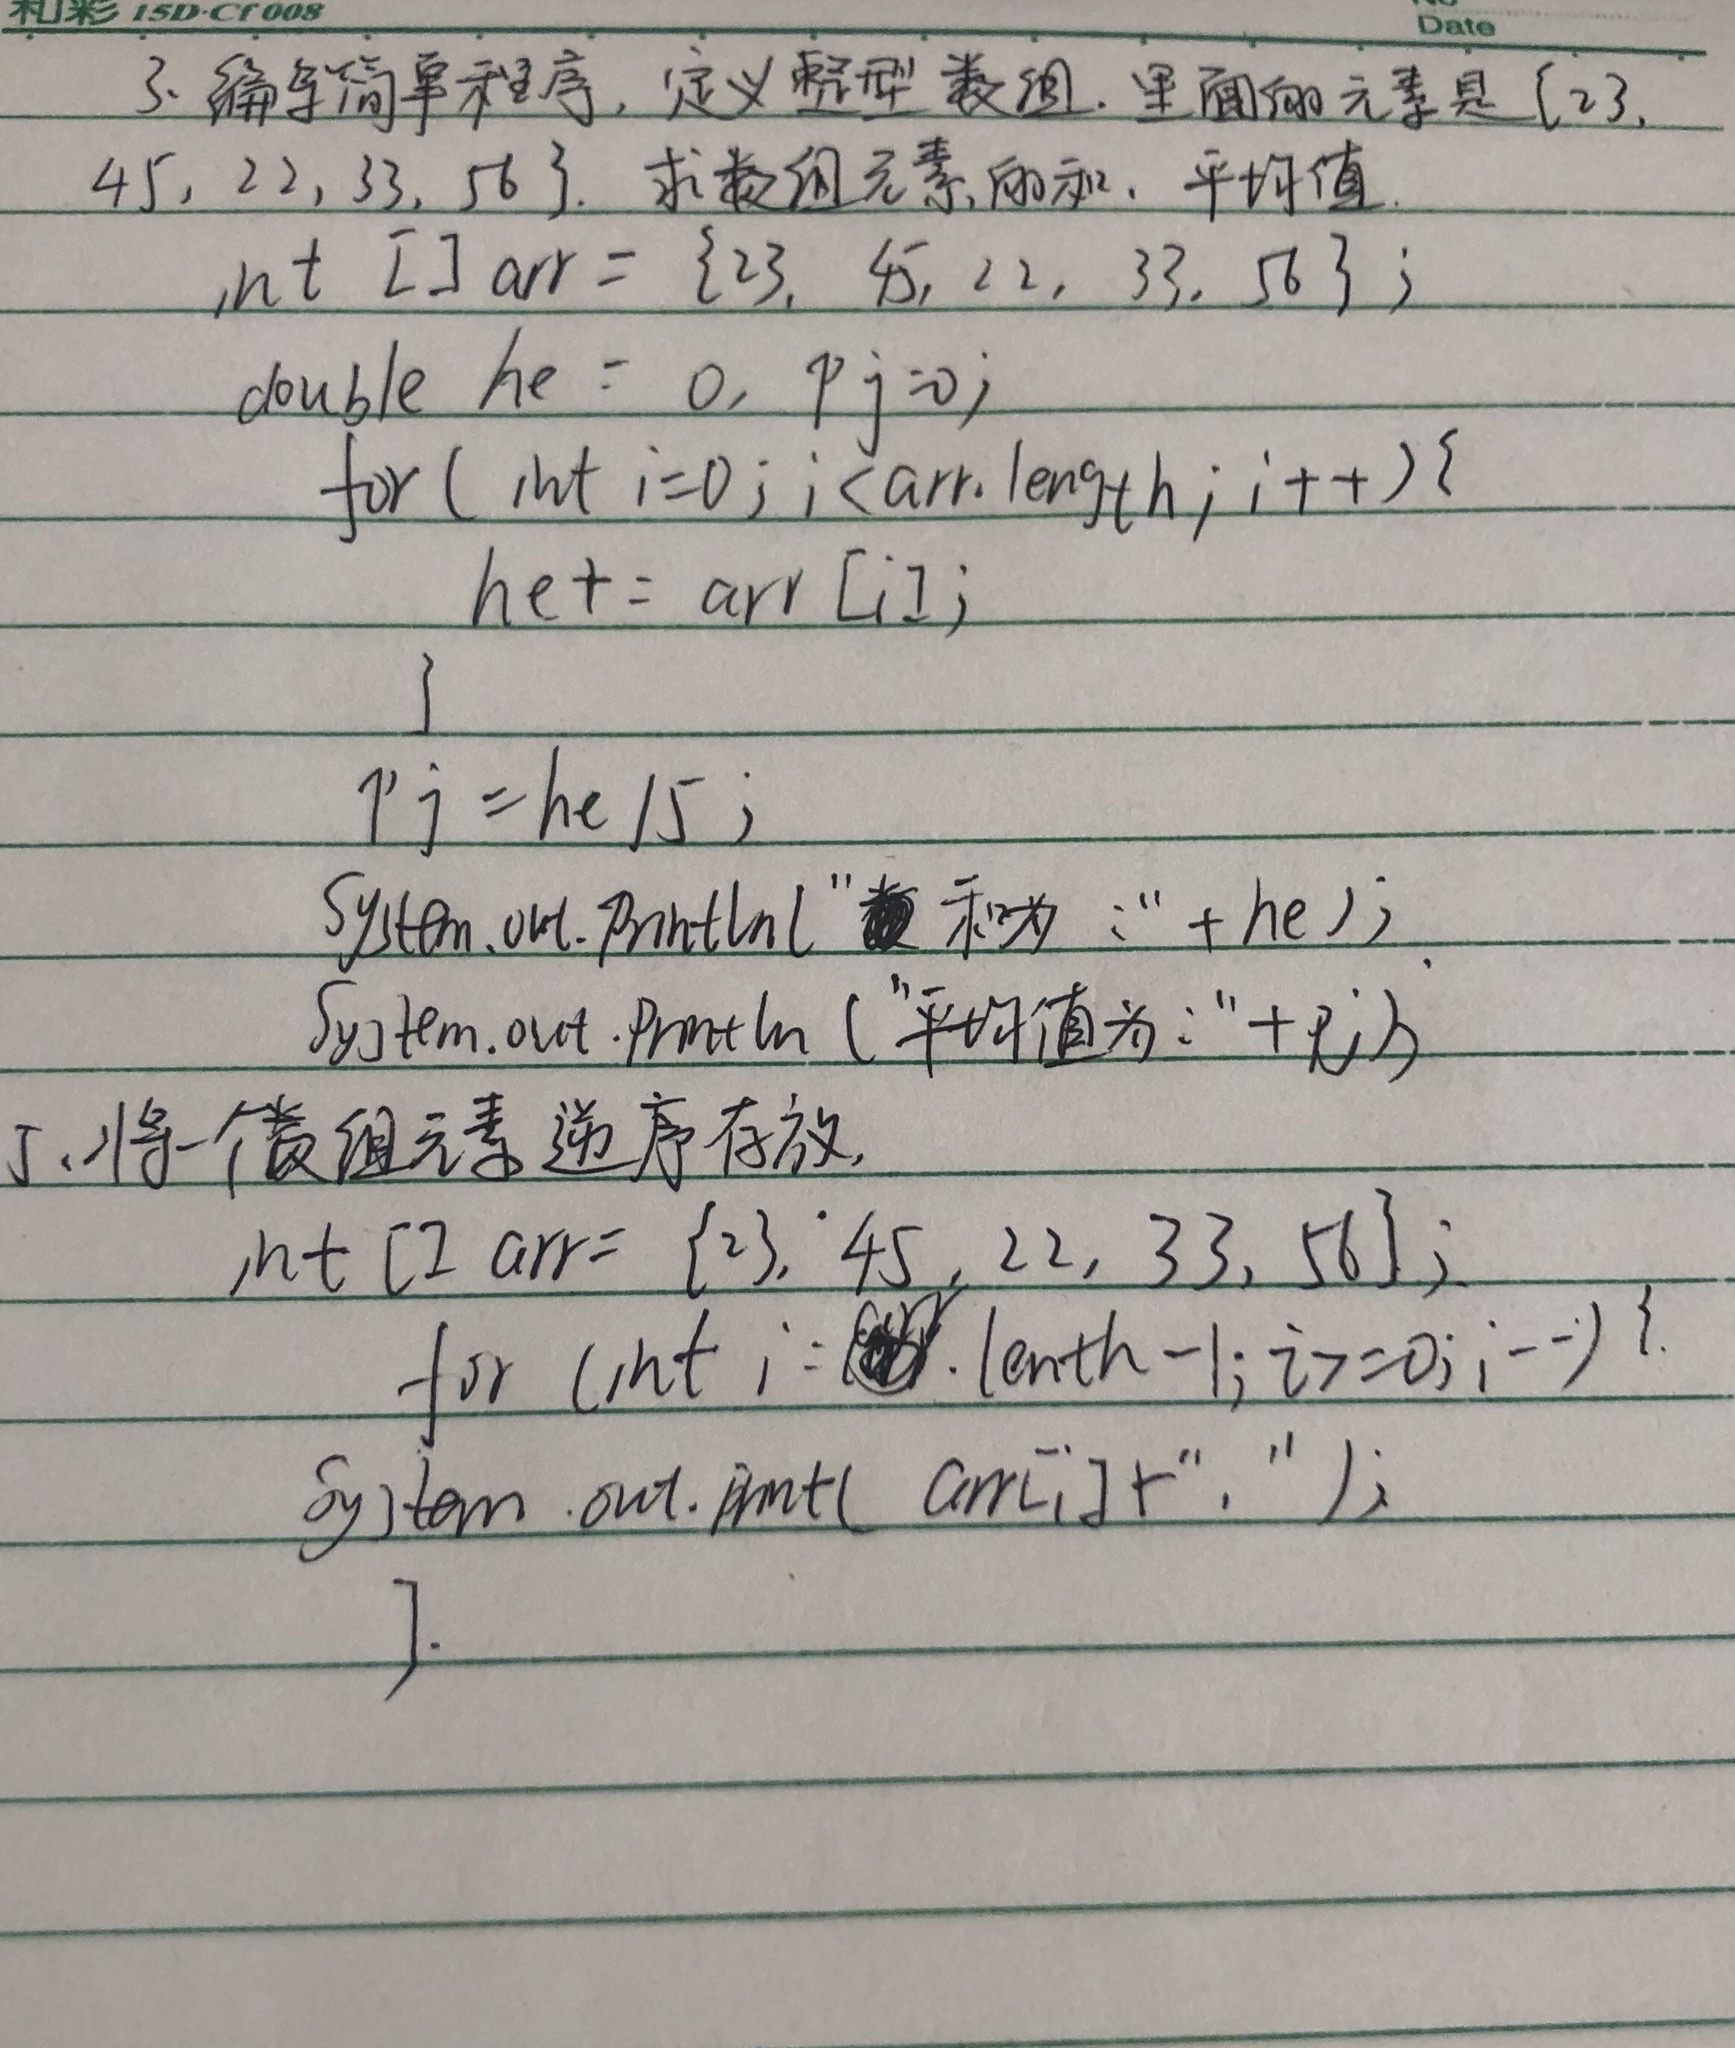 和彩 15D·Cf 008
No
Date
3. 编写简单程序, 定义整型数组. 里面的元素是{23,
45, 22, 33, 56}. 求数组元素的和. 平均值.
int [] arr = {23, 45, 22, 33, 56};
double he = 0, pj=0;
for( int i=0; i<arr.length; i++){
he+= arr[i];
}
pj=he/5;
System.out.println(" 和为:"+he);
System.out.println("平均值为:"+pj);
5、将一个数组元素逆序存放.
int [] arr= {23, 45, 22, 33, 56};
for (int i= .lenth-1; i>=0; i--){
System.out.print( arr[i]+", ");
}.